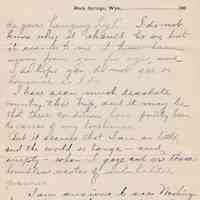 Rock Springs, Wyo., 190
do your hanging light. I do not
know why it should be so but
it seems to me I have been
away from you for ages, and
I do hope you do not go or
nonsense
I have seen much desolate
country this trip, and it may be
that these conditions have partly been
the cause of my loneliness
But it seems that I am so little,
and the world so large - and
empty - when I gaze out on these
boundless wastes of uninhabited
I am anxious to see